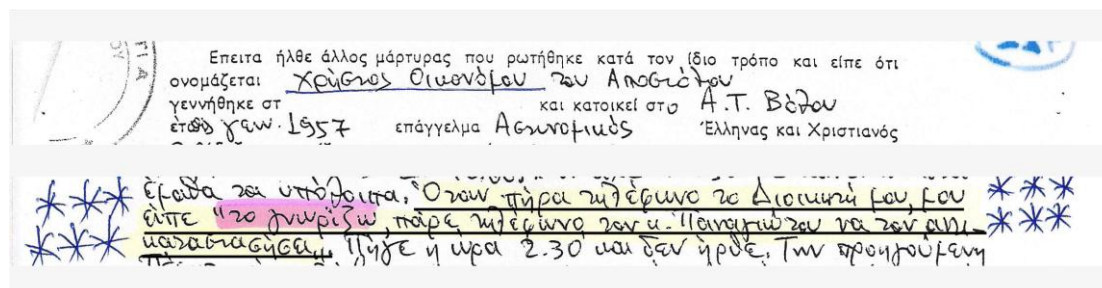 Επειτα ήλθε άλλος μάρτυρας που ρωτήθηκε κατά τον ίδιο τρόπο και είπε ότι
ονομάζεται Χρήστος Οικονόμου του Αποστόλου
γεννήθηκε στ και κατοικεί στο Α.Τ. Βόλου
έτος γεν. 1957 επάγγελμα Αστυνομικός Έλληνας και Χριστιανός
έμαθα τα υπόλοιπα. Όταν πήρα τηλέφωνο το Διοικητή μου, μου
είπε "το γνωρίζω, πάρε τηλέφωνο τον κ. Παναγιώτου να τον αντι-
καταστήσει„. Πήγε η ώρα 2.30 και δεν ήρθε. Την προηγούμενη